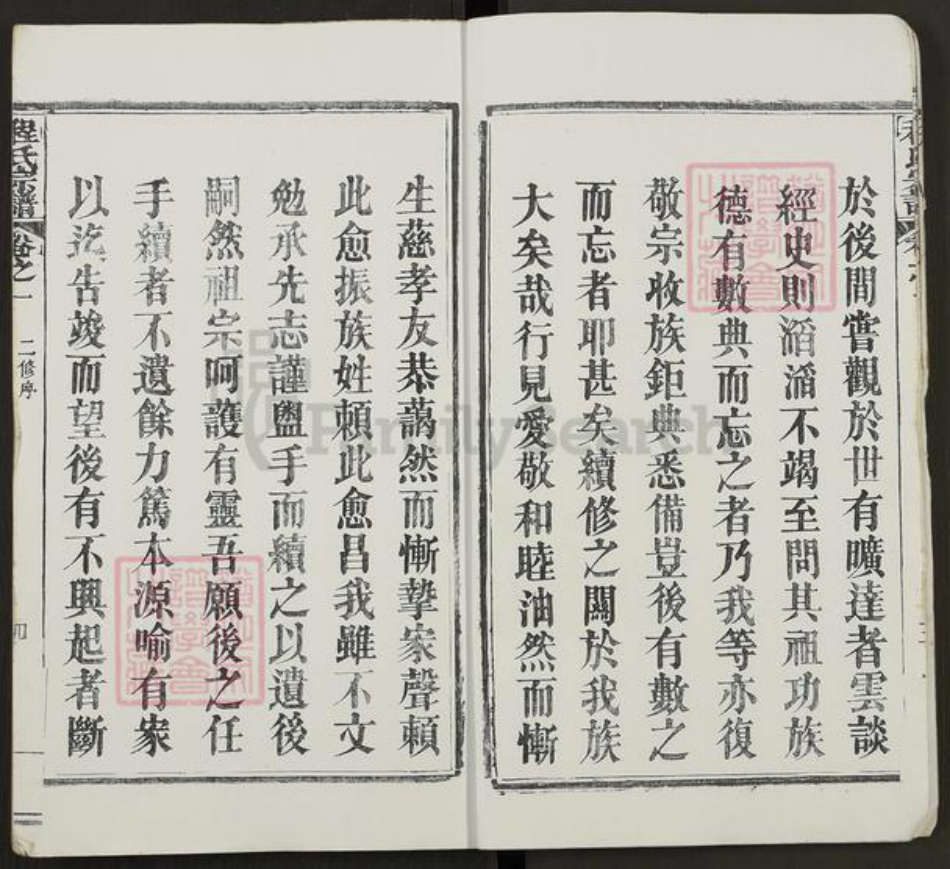 於後間嘗觀於世有曠達者雲談
經史則滔滔不竭至問其祖功族
德有數典而忘之者乃我等亦復
敬宗收族鉅典悉備豈後有數之
而忘者耶甚矣續修之關於我族
大矣哉行見愛敬和睦油然而慚
生慈孝友恭藹然而慚摯家聲賴
此愈振族姓賴此愈昌我雖不文
勉承先志謹盥手而續之以遺後
嗣然祖宗呵護有靈吾願後之任
手續者不遺餘力篤本源喻有家
以迄告竣而望後有不興起者斷
程氏宗譜 卷之一 二修序
FamilySearch